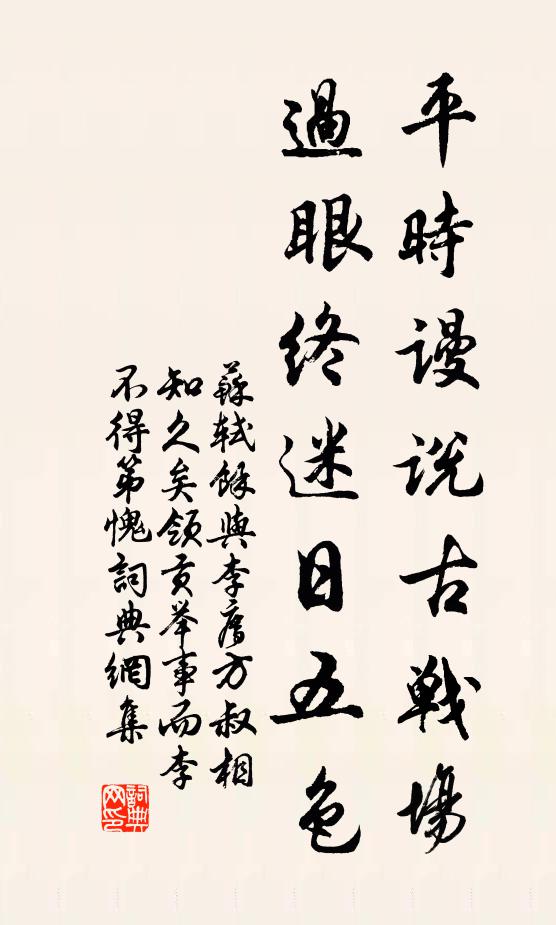 平時謾説古戰場
過眼終迷日五色
蘇軾餘與李廌方叔相
知久矣領貢舉事而李
不得第愧詞典網集
詞典網印